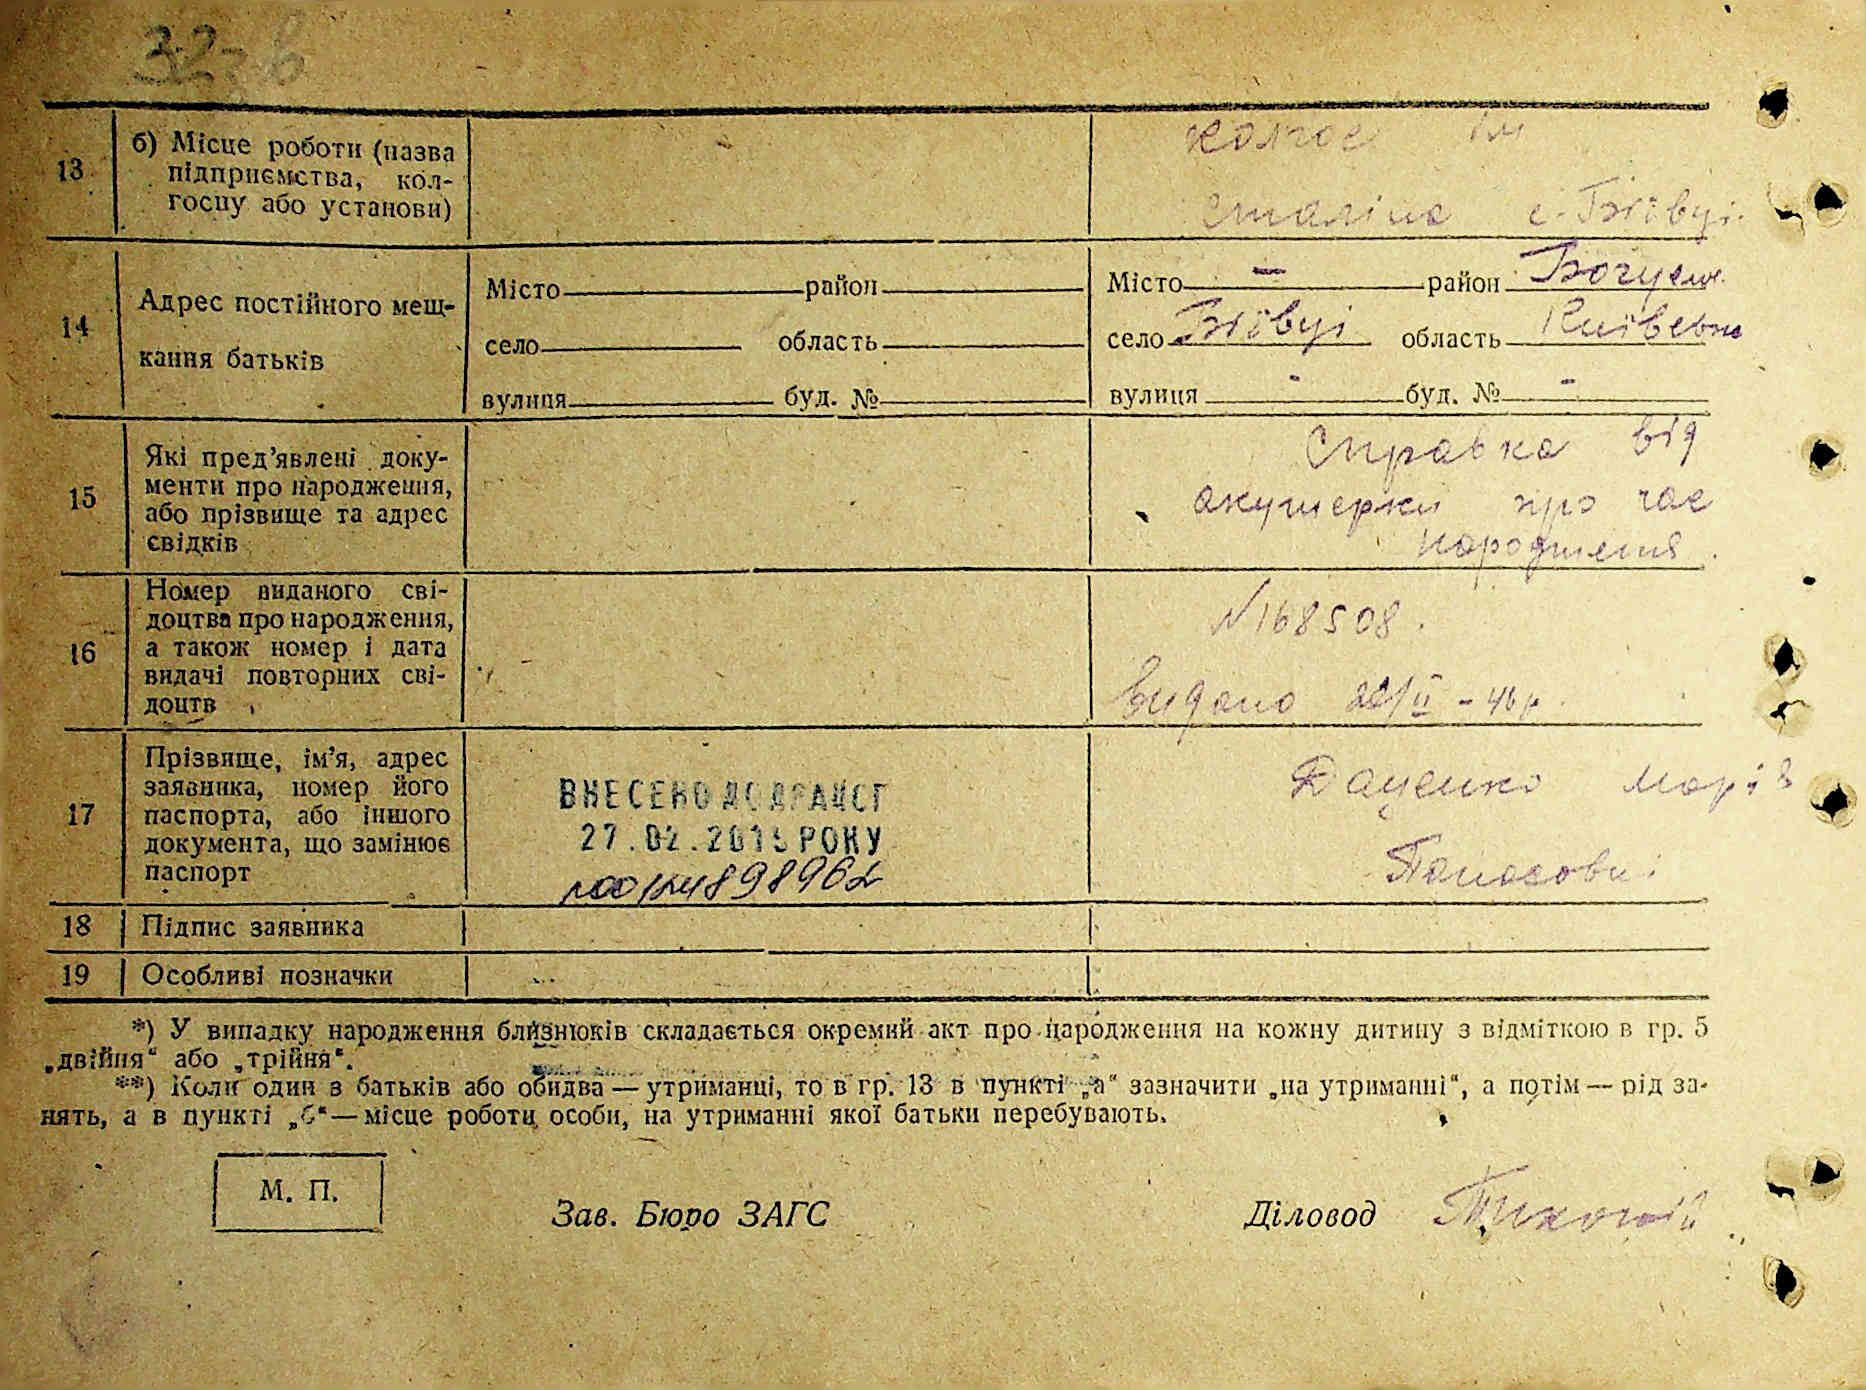 32-в
13 б) Місце роботи (назва
підприємства, кол-
госпу або установи)
колгос ім
сталіна с. Бігвуі.
14 Адрес постійного меш-
кання батьків
Місто район
село область
вулиця буд. №
Місто - район
село область
вулиця - буд. № -
15 Які пред’явлені доку-
менти про народження,
або прізвище та адрес
свідків
справка від
акушерки про час
народження.
16 Номер виданого сві-
доцтва про народження,
а також номер і дата
видачі повторних сві-
доцтв
N 168508.
Видано 22/II - 46 р.
17 Прізвище, ім’я, адрес
заявника, номер його
паспорта, або іншого
документа, що замінює
паспорт
ВНЕСЕНО ДО ДРАЦСГ
27.02.2015 РОКУ
Даценко Марія
Панасовн
18 Підпис заявника
19 Особливі позначки
*) У випадку народження близнюків складається окремий акт про народження на кожну дитину з відміткою в гр. 5
„двійня“ або „трійня“.
**) Коли один з батьків або обидва — утриманці, то в гр. 13 в пункті „а“ зазначити „на утриманні“, а потім — рід за-
нять, а в пункті „б“ — місце роботи особи, на утриманні якої батьки перебувають.
М. П.
Зав. Бюро ЗАГС
Діловод